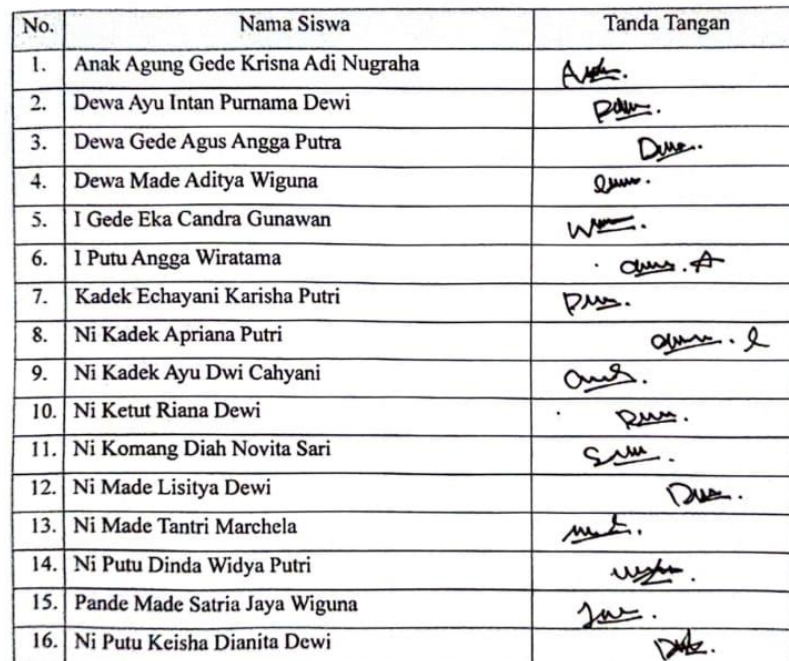 No. Nama Siswa Tanda Tangan
1. Anak Agung Gede Krisna Adi Nugraha
2. Dewa Ayu Intan Purnama Dewi
3. Dewa Gede Agus Angga Putra
4. Dewa Made Aditya Wiguna
5. I Gede Eka Candra Gunawan
6. I Putu Angga Wiratama
7. Kadek Echayani Karisha Putri
8. Ni Kadek Apriana Putri
9. Ni Kadek Ayu Dwi Cahyani
10. Ni Ketut Riana Dewi
11. Ni Komang Diah Novita Sari
12. Ni Made Lisitya Dewi
13. Ni Made Tantri Marchela
14. Ni Putu Dinda Widya Putri
15. Pande Made Satria Jaya Wiguna
16. Ni Putu Keisha Dianita Dewi